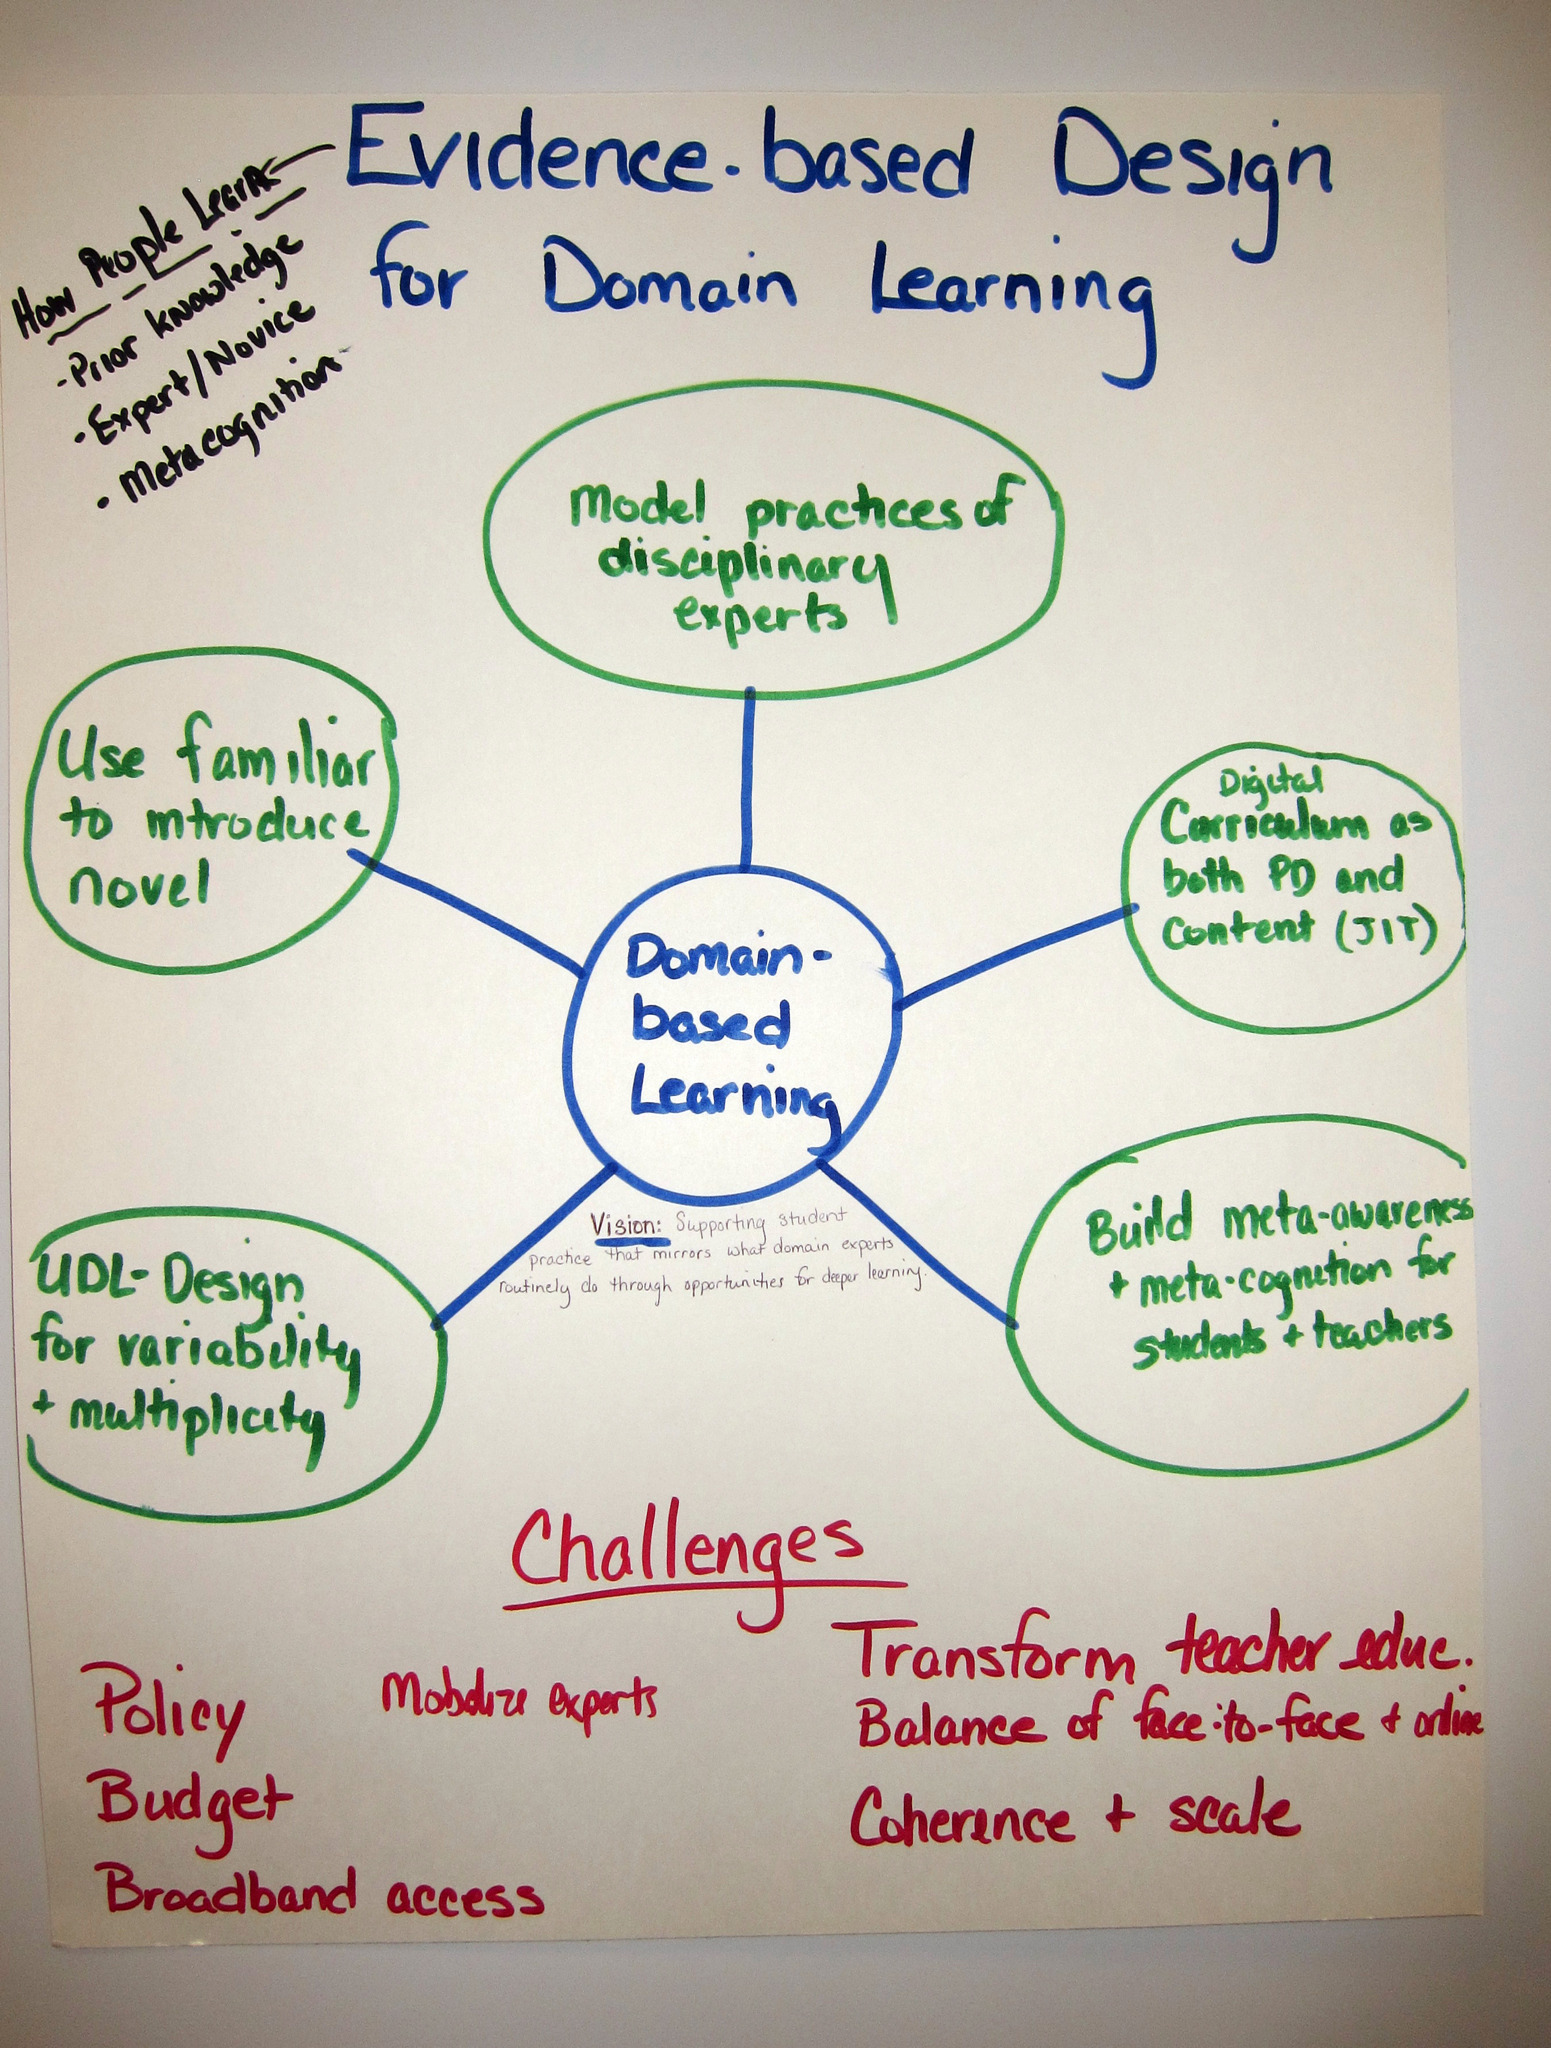 Evidence-based Design
for Domain Learning
How People Learn
- Prior knowledge
- Expert/Novice
- Metacognition
Model practices of
disciplinary
experts
Use familiar
to introduce
novel
Digital
Curriculum as
both PD and
Content (JIT)
Domain-
based
Learning
Vision: Supporting student
practice that mirrors what domain experts
routinely do through opportunities for deeper learning.
UDL-Design
for variability
+ multiplicity
Build meta-awareness
+ meta-cognition for
students + teachers
Challenges
Policy
Budget
Broadband access
Mobolize experts
Transform teacher educ.
Balance of face-to-face + online
Coherence + scale